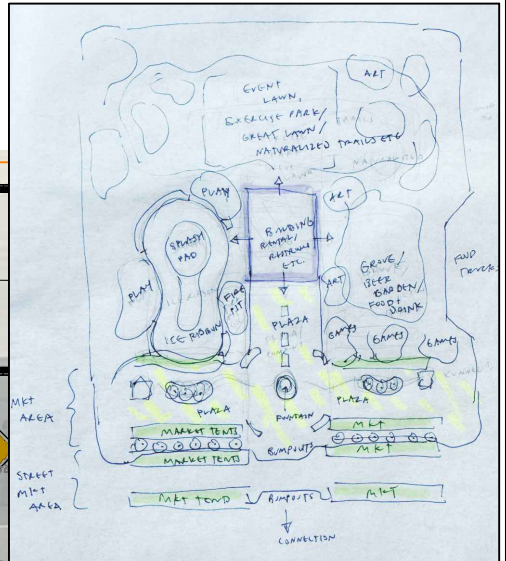 EVENT
LAWN,
EXERCISE PARK/
GREAT LAWN/
NATURALIZED TRAILS ETC
ART
PLAY
ART
BUILDING
RENTAL/
RESTROOMS
ETC.
SPLASH
PAD
PLAY
ICE RIBBON
FIRE
PIT
PLAZA
ART
GROVE/
BEER
GARDEN/
FOOD+
DRINK
FOOD
TRUCKS
GAMES
GAMES
GAMES
MKT
AREA
PLAZA
FOUNTAIN
PLAZA
MARKET TENTS
MKT
MARKET TENTS
BUMPOUTS
MKT
STREET
MKT
AREA
MKT TENTS
BUMPOUTS
MKT
CONNECTION